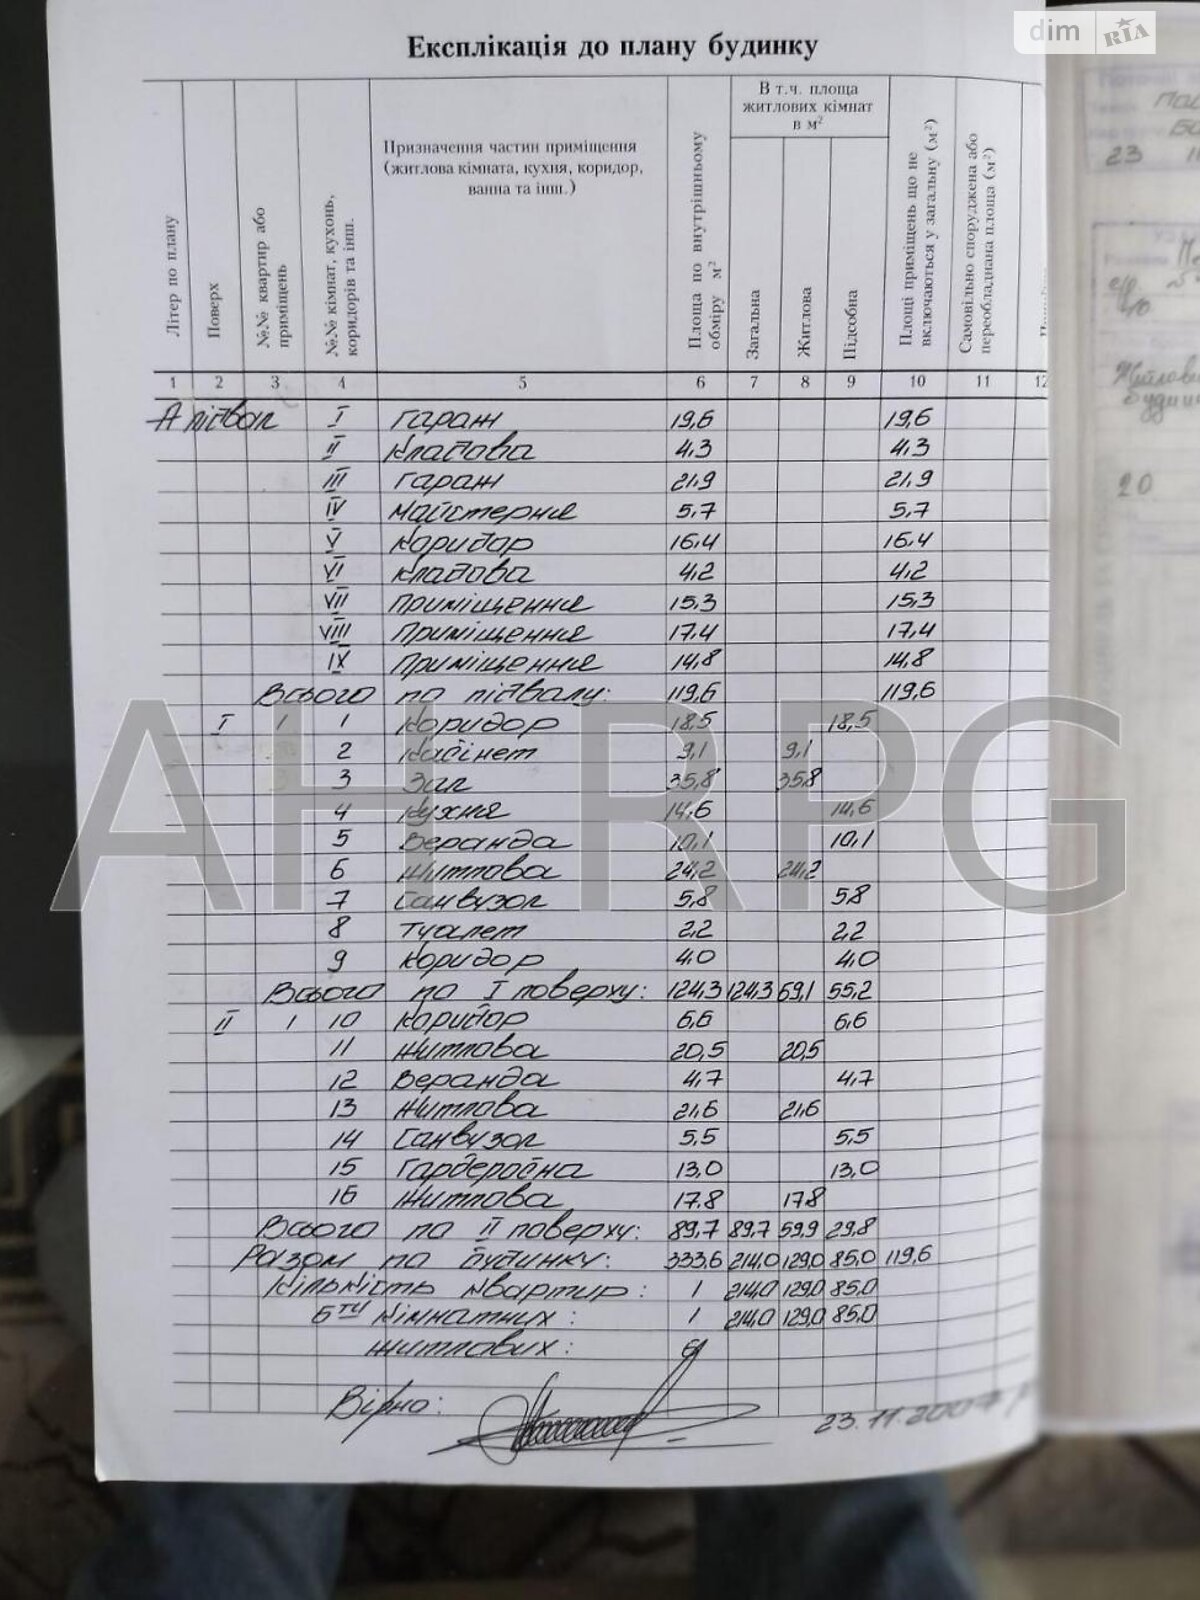 dim RIA
Експлікація до плану будинку
Літер по плану
Поверх
№№ квартир або приміщень
№№ кімнат, кухонь, коридорів та інш.
Призначення частин приміщення
(житлова кімната, кухня, коридор,
ванна та інш.)
Площа по внутрішньому обміру м²
В т.ч. площа
житлових кімнат
в м²
Загальна
Житлова
Підсобна
Площі приміщень що не включаються у загальну (м²)
Самовільно споруджена або переобладнана площа (м²)
1 2 3 4 5 6 7 8 9 10 11 12
А підвал I гараж 19,6 19,6
II кладова 4,3 4,3
III гараж 21,9 21,9
IV майстерня 5,7 5,7
V коридор 16,4 16,4
VI кладова 4,2 4,2
VII приміщення 15,3 15,3
VIII приміщення 17,4 17,4
IX приміщення 14,8 14,8
Всього по підвалу: 119,6 119,6
I 1 1 коридор 18,5 18,5
2 кабінет 9,1 9,1
3 зал 35,8 35,8
4 кухня 14,6 14,6
5 веранда 10,1 10,1
6 житлова 24,2 24,2
7 санвузол 5,8 5,8
8 туалет 2,2 2,2
9 коридор 4,0 4,0
Всього по I поверху: 124,3 124,3 69,1 55,2
II 1 10 коридор 6,6 6,6
11 житлова 20,5 20,5
12 веранда 4,7 4,7
13 житлова 21,6 21,6
14 санвузол 5,5 5,5
15 гардеробна 13,0 13,0
16 житлова 17,8 17,8
Всього по II поверху: 89,7 89,7 59,9 29,8
Разом по будинку: 333,6 214,0 129,0 85,0 119,6
Кількість квартир: 1 214,0 129,0 85,0
6ти кімнатних: 1 214,0 129,0 85,0
житлових: 6
Вірно:
23.11.2007 р
AH RPG
23
20